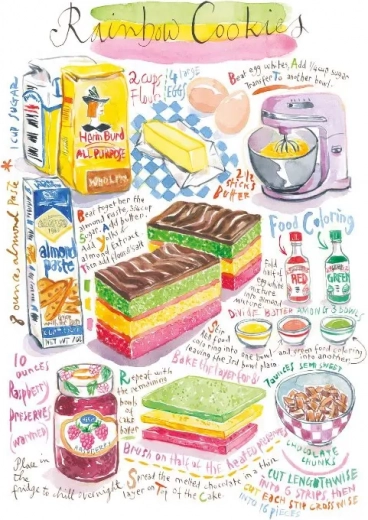 Rainbow Cookies
2 cups
Flour
4 large
EGGS
Beat egg whites, Add 1/4 cup sugar
Transfer To another bowl.
* 1 CUP SUGAR
ALL PURPOSE
2 1/2
STICKS
BUTTER
8 ounces almond paste
almond
paste
Beat together the
almond paste, 3/4 cup
Sugar. Add butter.
Add yolks &
almond extract
Then add flour & salt
Food Coloring
RED
GREEN
Fold
half of
egg white
mixture
into almond
mixture
DIVIDE BATTER AMONG 3 BOWLS
Stir
red food
coloring into one bowl and green food coloring
into another
leaving the 3rd bowl plain
Bake this layer for 8
10
ounces
Raspberry
Preserves
(warmed)
RASPBERRY
Repeat with
the remaining
bowls
of
cake
batter
7 ounces SEMI SWEET
CHOCOLATE
CHUNKS
Brush on Half of the heated preserves
Place in
the
fridge to chill overnight
Spread the melted chocolate in a thin
layer on Top of the Cake.
CUT LENGTHWISE
INTO 6 STRIPS, THEN
CUT EACH STRIP CROSSWISE
INTO 16 PIECES